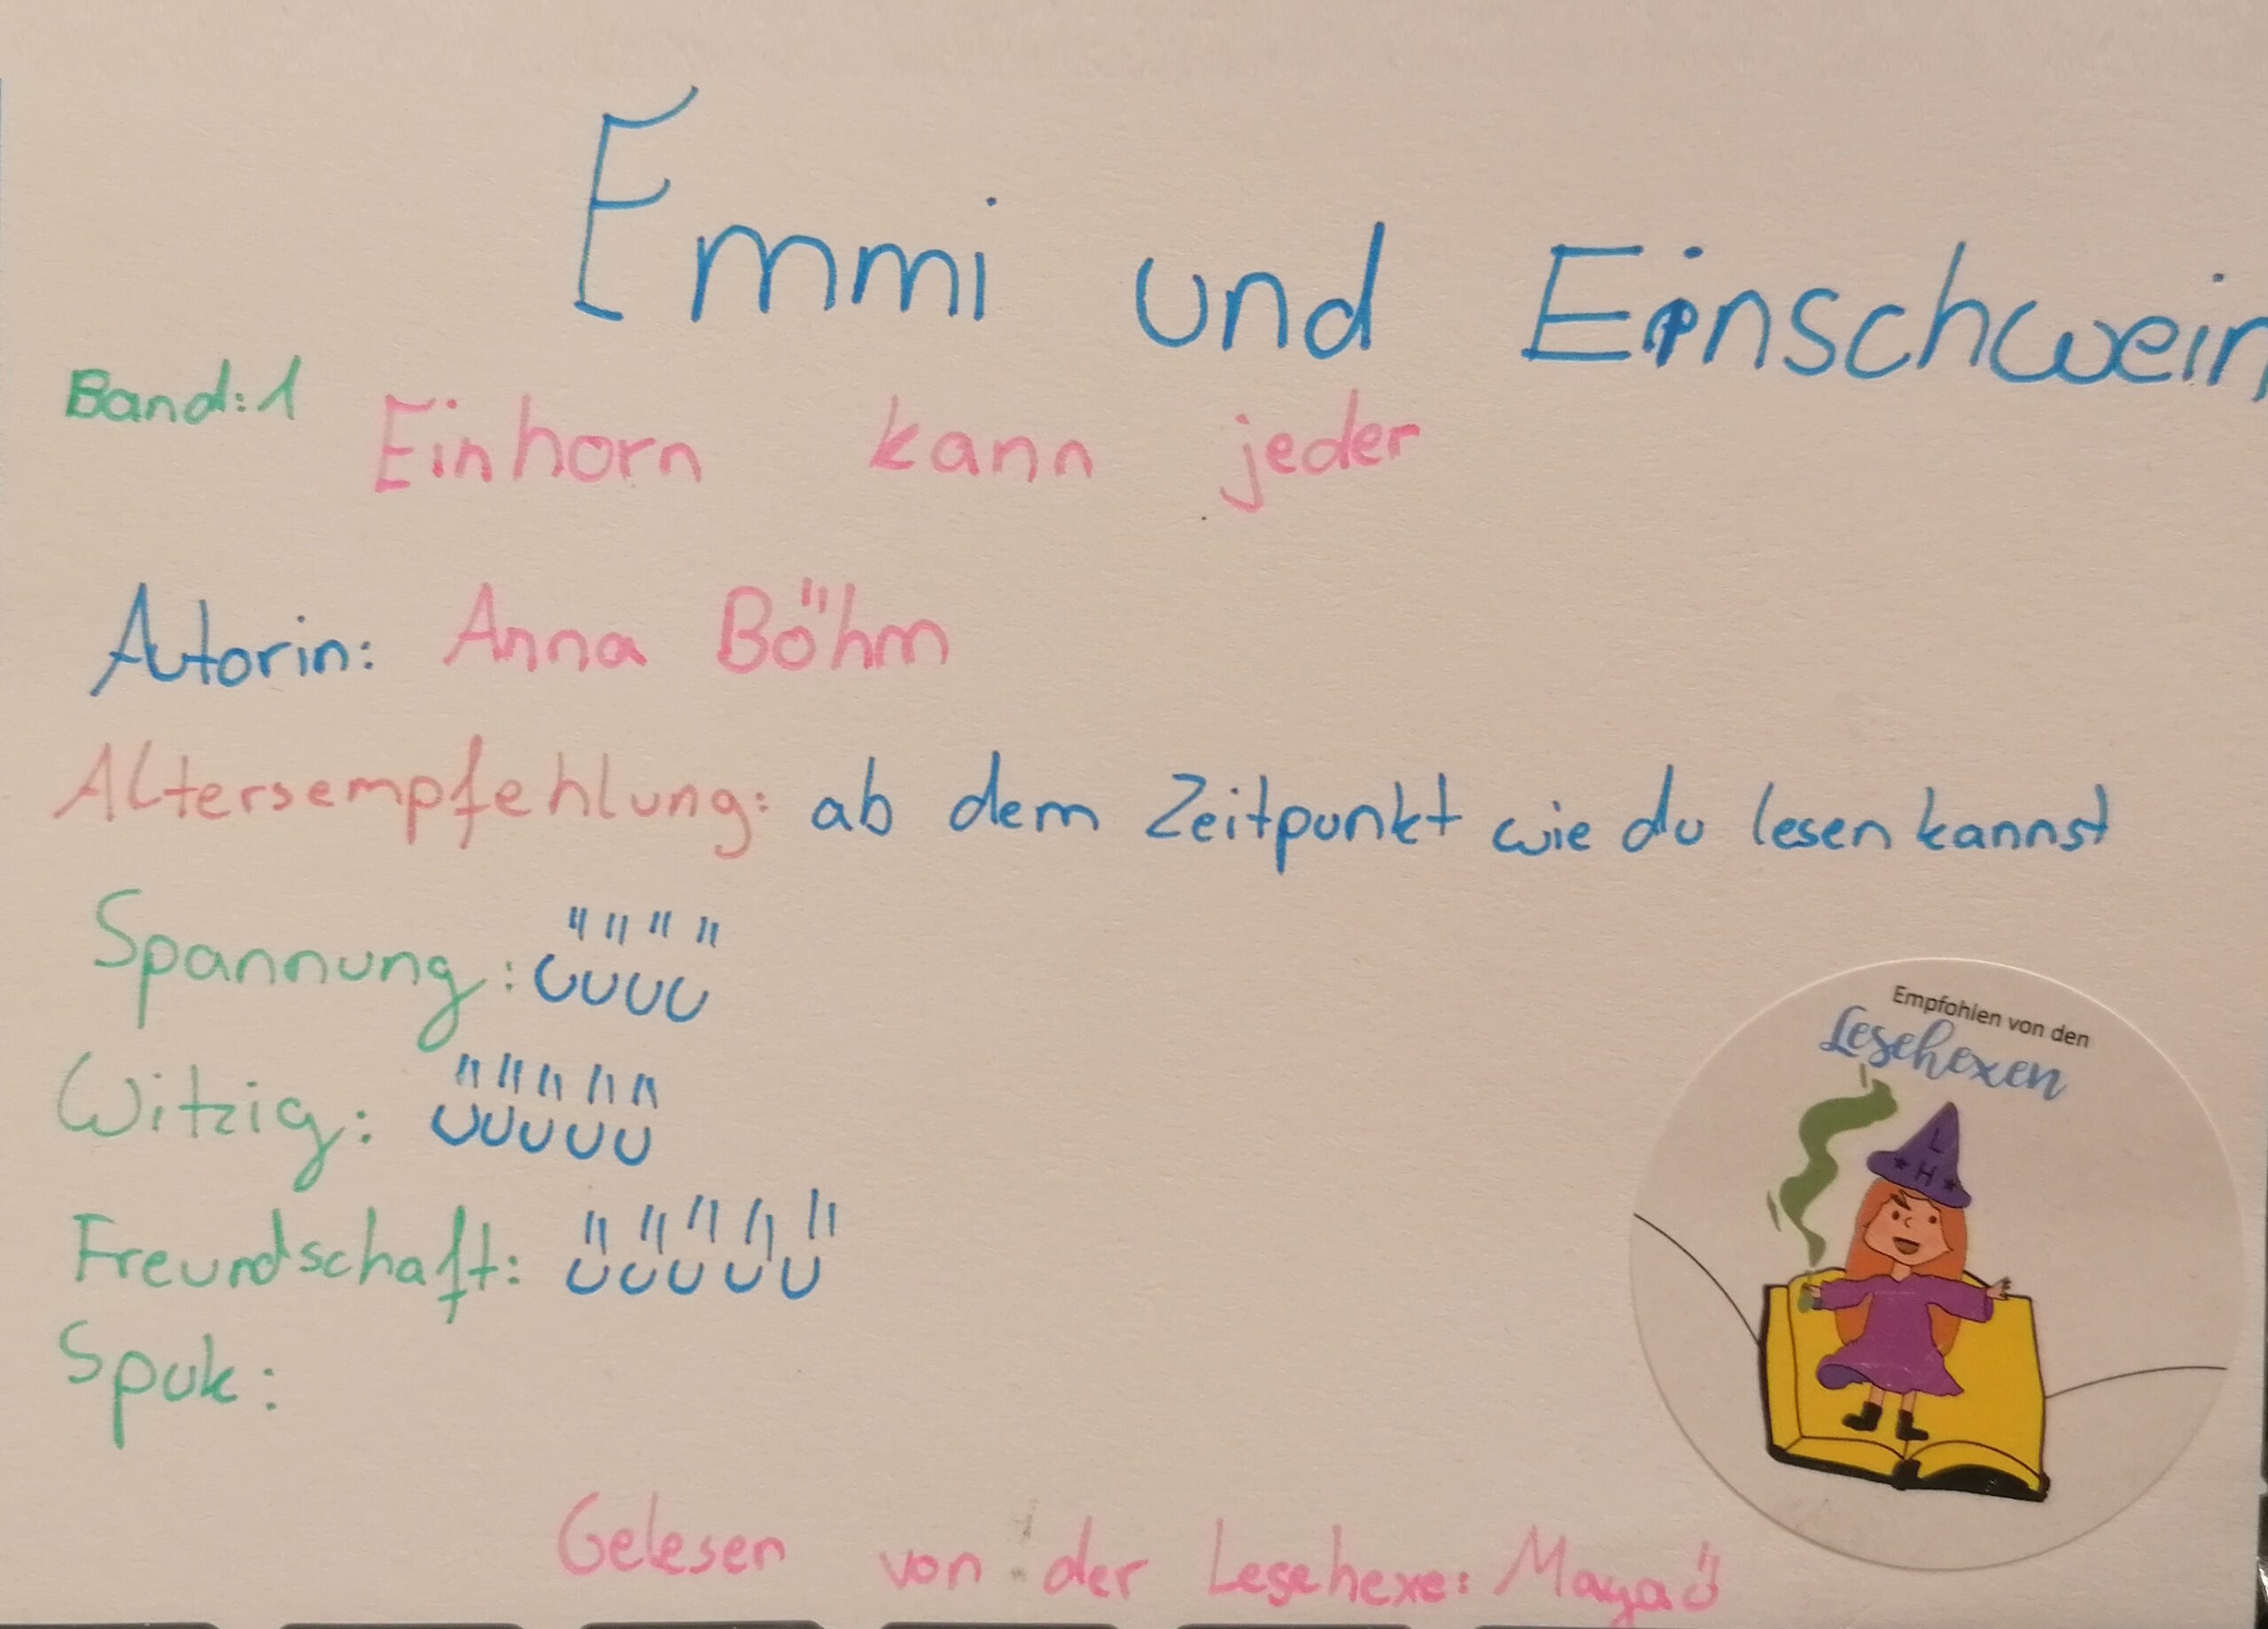 Emmi und Einschwein
Band: 1
Einhorn kann jeder
Autorin: Anna Böhm
Altersempfehlung: ab dem Zeitpunkt wie du lesen kannst
Spannung:
Witzig:
Freundschaft:
Spuk:
Empfohlen von den
Lesehexen
L
H
Gelesen von der Lesehexe: Maya